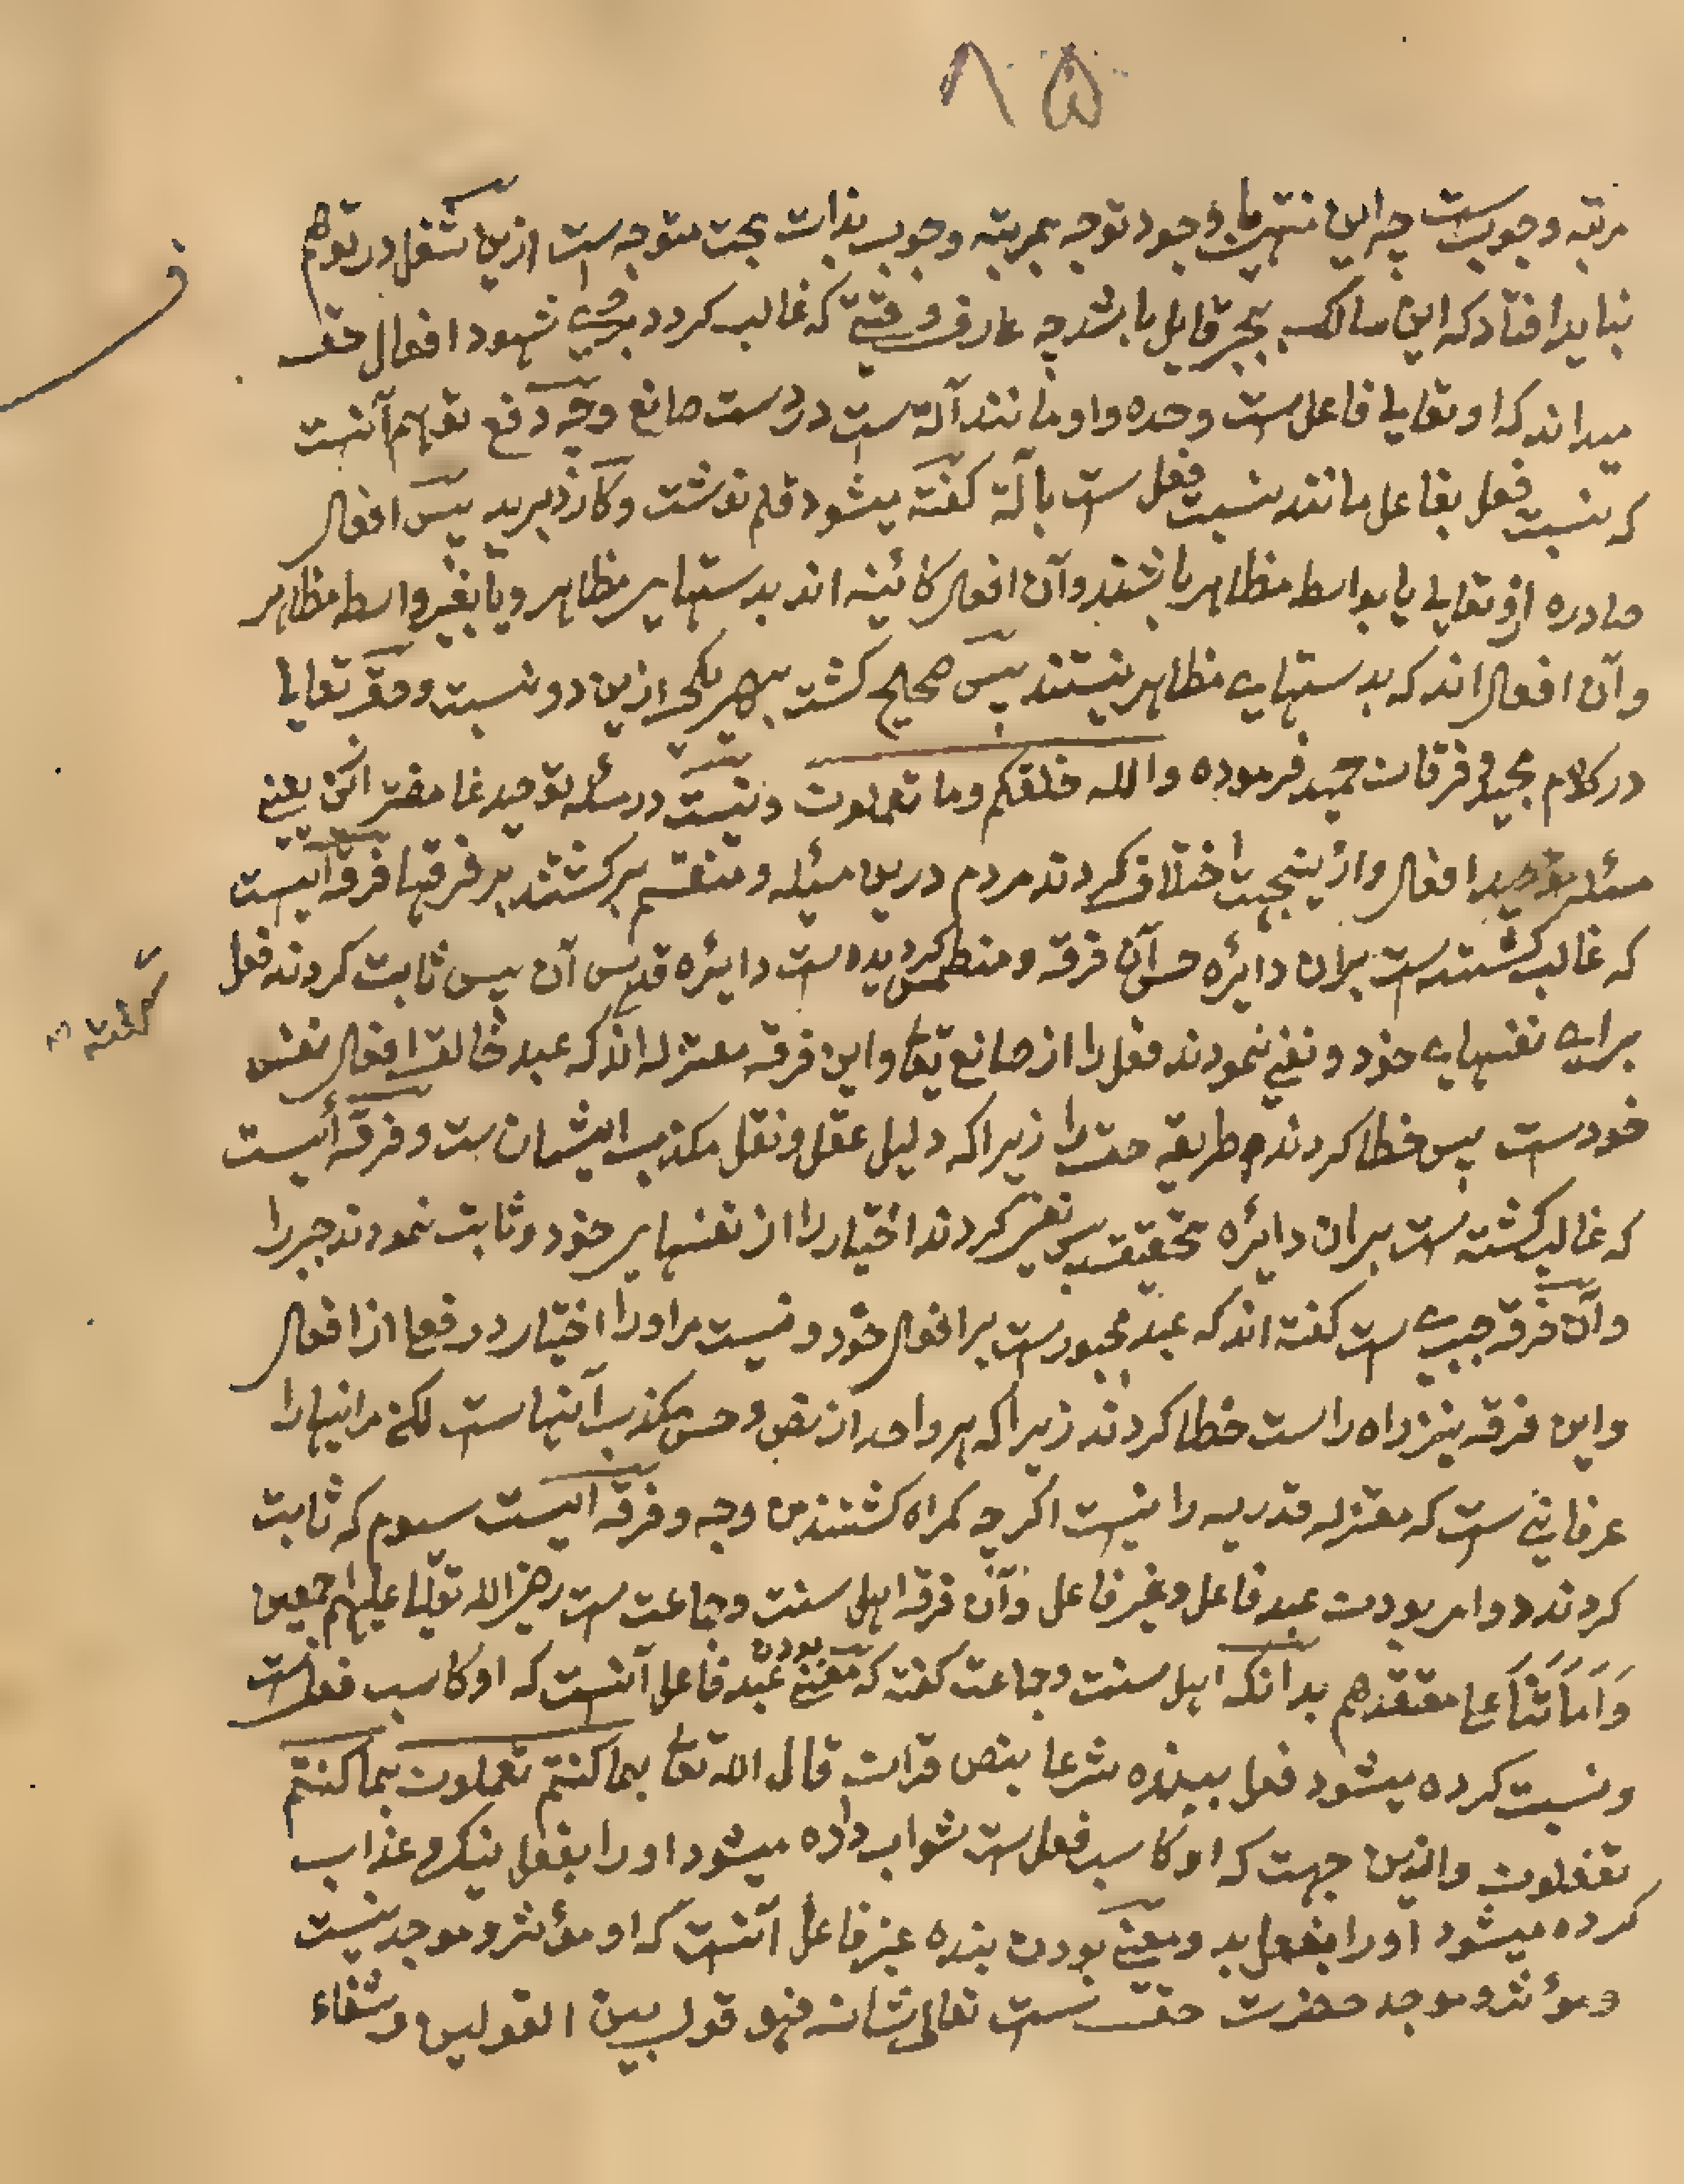 ۸۵
مرتبه وجوبست چه این منتهیان وجود توجه بمرتبه وجوب بذات بحت متوجه است ازین شغل در توهم
نباید افتاد که این سالک بجبر قایل باشد چه عارف وقتی که غالب کردد بروی شهود افعال حق
میداند که او تعالی فاعل ست وحده واو مانند آله ست در دست صانع وجه دفع توهم آنست
که نسبت فعل بفاعل مانند نسبت فعل ست بآلة کفته میشود قلم نوشت وکارد برید پس افعال
صادره ازو تعالی یا بواسط مظاهر باشند وآن افعال کائینه اند بدستهای مظاهر ویا بغیر واسط مظاهر
وآن افعال اند که بدستهای مظاهر نیستند پس صحیح کشت بهر یکی ازین دو نسبت وحق تعالی
در کلام مجید وفرقان حمید فرموده والله خلقکم وما تعملون ونیست در مسئله توحید غامض تر ازین یعنی
مسئله توحید افعال وازینجهت اختلاف کردند مردم درین مسئله ومنقسم برکشتند بر فرقها فرقه ایست
که غالب کشتست بران دایره حس آن فرقه ومنطمس کردیده ست دایره قدس آن پس ثابت کردند فعل
برای نفسهای خود ونفی نمودند فعل را از صانع تعالی واین فرقه معتزله اند که عبد خالق افعال نفس
کفته
خودست پس خطا کردند طریقه حق را زیرا که دلیل عقل ونقل مکذب ایشان ست وفرقه ایست
که غالب کشته ست بران دایره تحقیق پس نفی کردند اختیار را از نفسهای خود وثابت نمودند جبر را
وآن فرقه جبری ست کفته اند که عبد مجبورست بر افعال خود ونیست مر اورا اختیار در فعل از افعال
واین فرقه نیز راه راست خطا کردند زیرا که هر واحد از نص وحس مکذب آنها ست لکن مر اینها را
عرفانی ست که معتزله قدریه را نیست اکرچه کمراه کشتند من وجه وفرقه ایست سیوم که ثابت
کردند دو امر بودن عبد فاعل وغیر فاعل وآن فرقه اهل سنت وجماعت ست رضی الله تعالی علیهم اجمعین
وَاَمَاتَنَا عَلی معتقدهم بدآنکه اهل سنت وجماعت کفته که معنی بودن عبد فاعل آنست که او کاسب فعل ست
ونسبت کرده میشود فعل ببنده شرعا بنص قران قال الله تعالی بما کنتم تعملون بما کنتم
تفعلون وازین جهت که او کاسب فعل ست ثواب داده میشود اورا بفعل نیک وعذاب
کرده میشود اورا بفعل بد ومعنی بودن بنده غیر فاعل آنست که او مؤثر وموجد نیست
ومؤثر وموجد حضرت حق ست تعالی شانه فهو قول بین القولین وشفاء